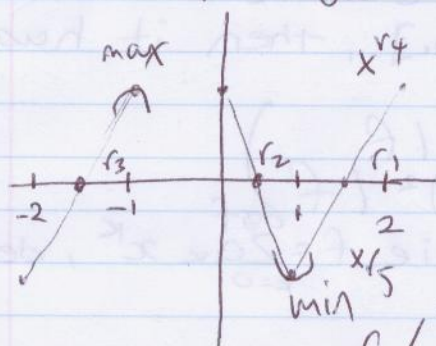 max
x r4
r3 r2 r1
-2 -1 1 2
x r5
min